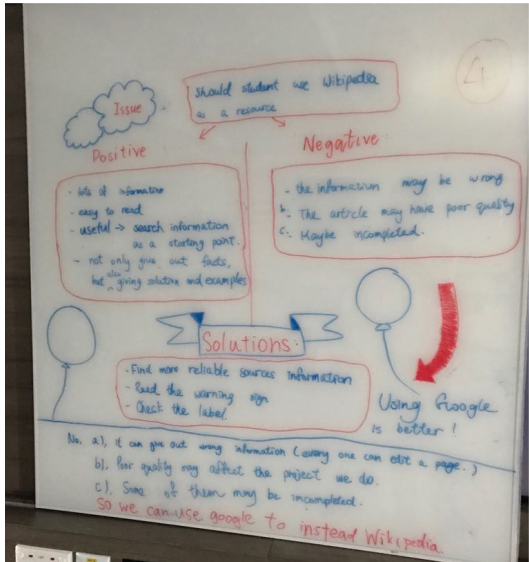 4
Issue
should student use Wikipedia
as a resource
Positive
Negative
- lots of information
- easy to read
- useful → search information
as a starting point.
- not only give out facts,
but also giving solution and examples
- the information may be wrong
b. The article may have poor quality
c. Maybe incompleted.
Solutions:
- Find more reliable sources information
- Read the warning sign
- Check the label.
Using Google
is better!
No. a), it can give out wrong information (every one can edit a page.)
b). Poor quality may affect the project we do.
c). Some of them may be incompleted.
So we can use google to instead Wikipedia.